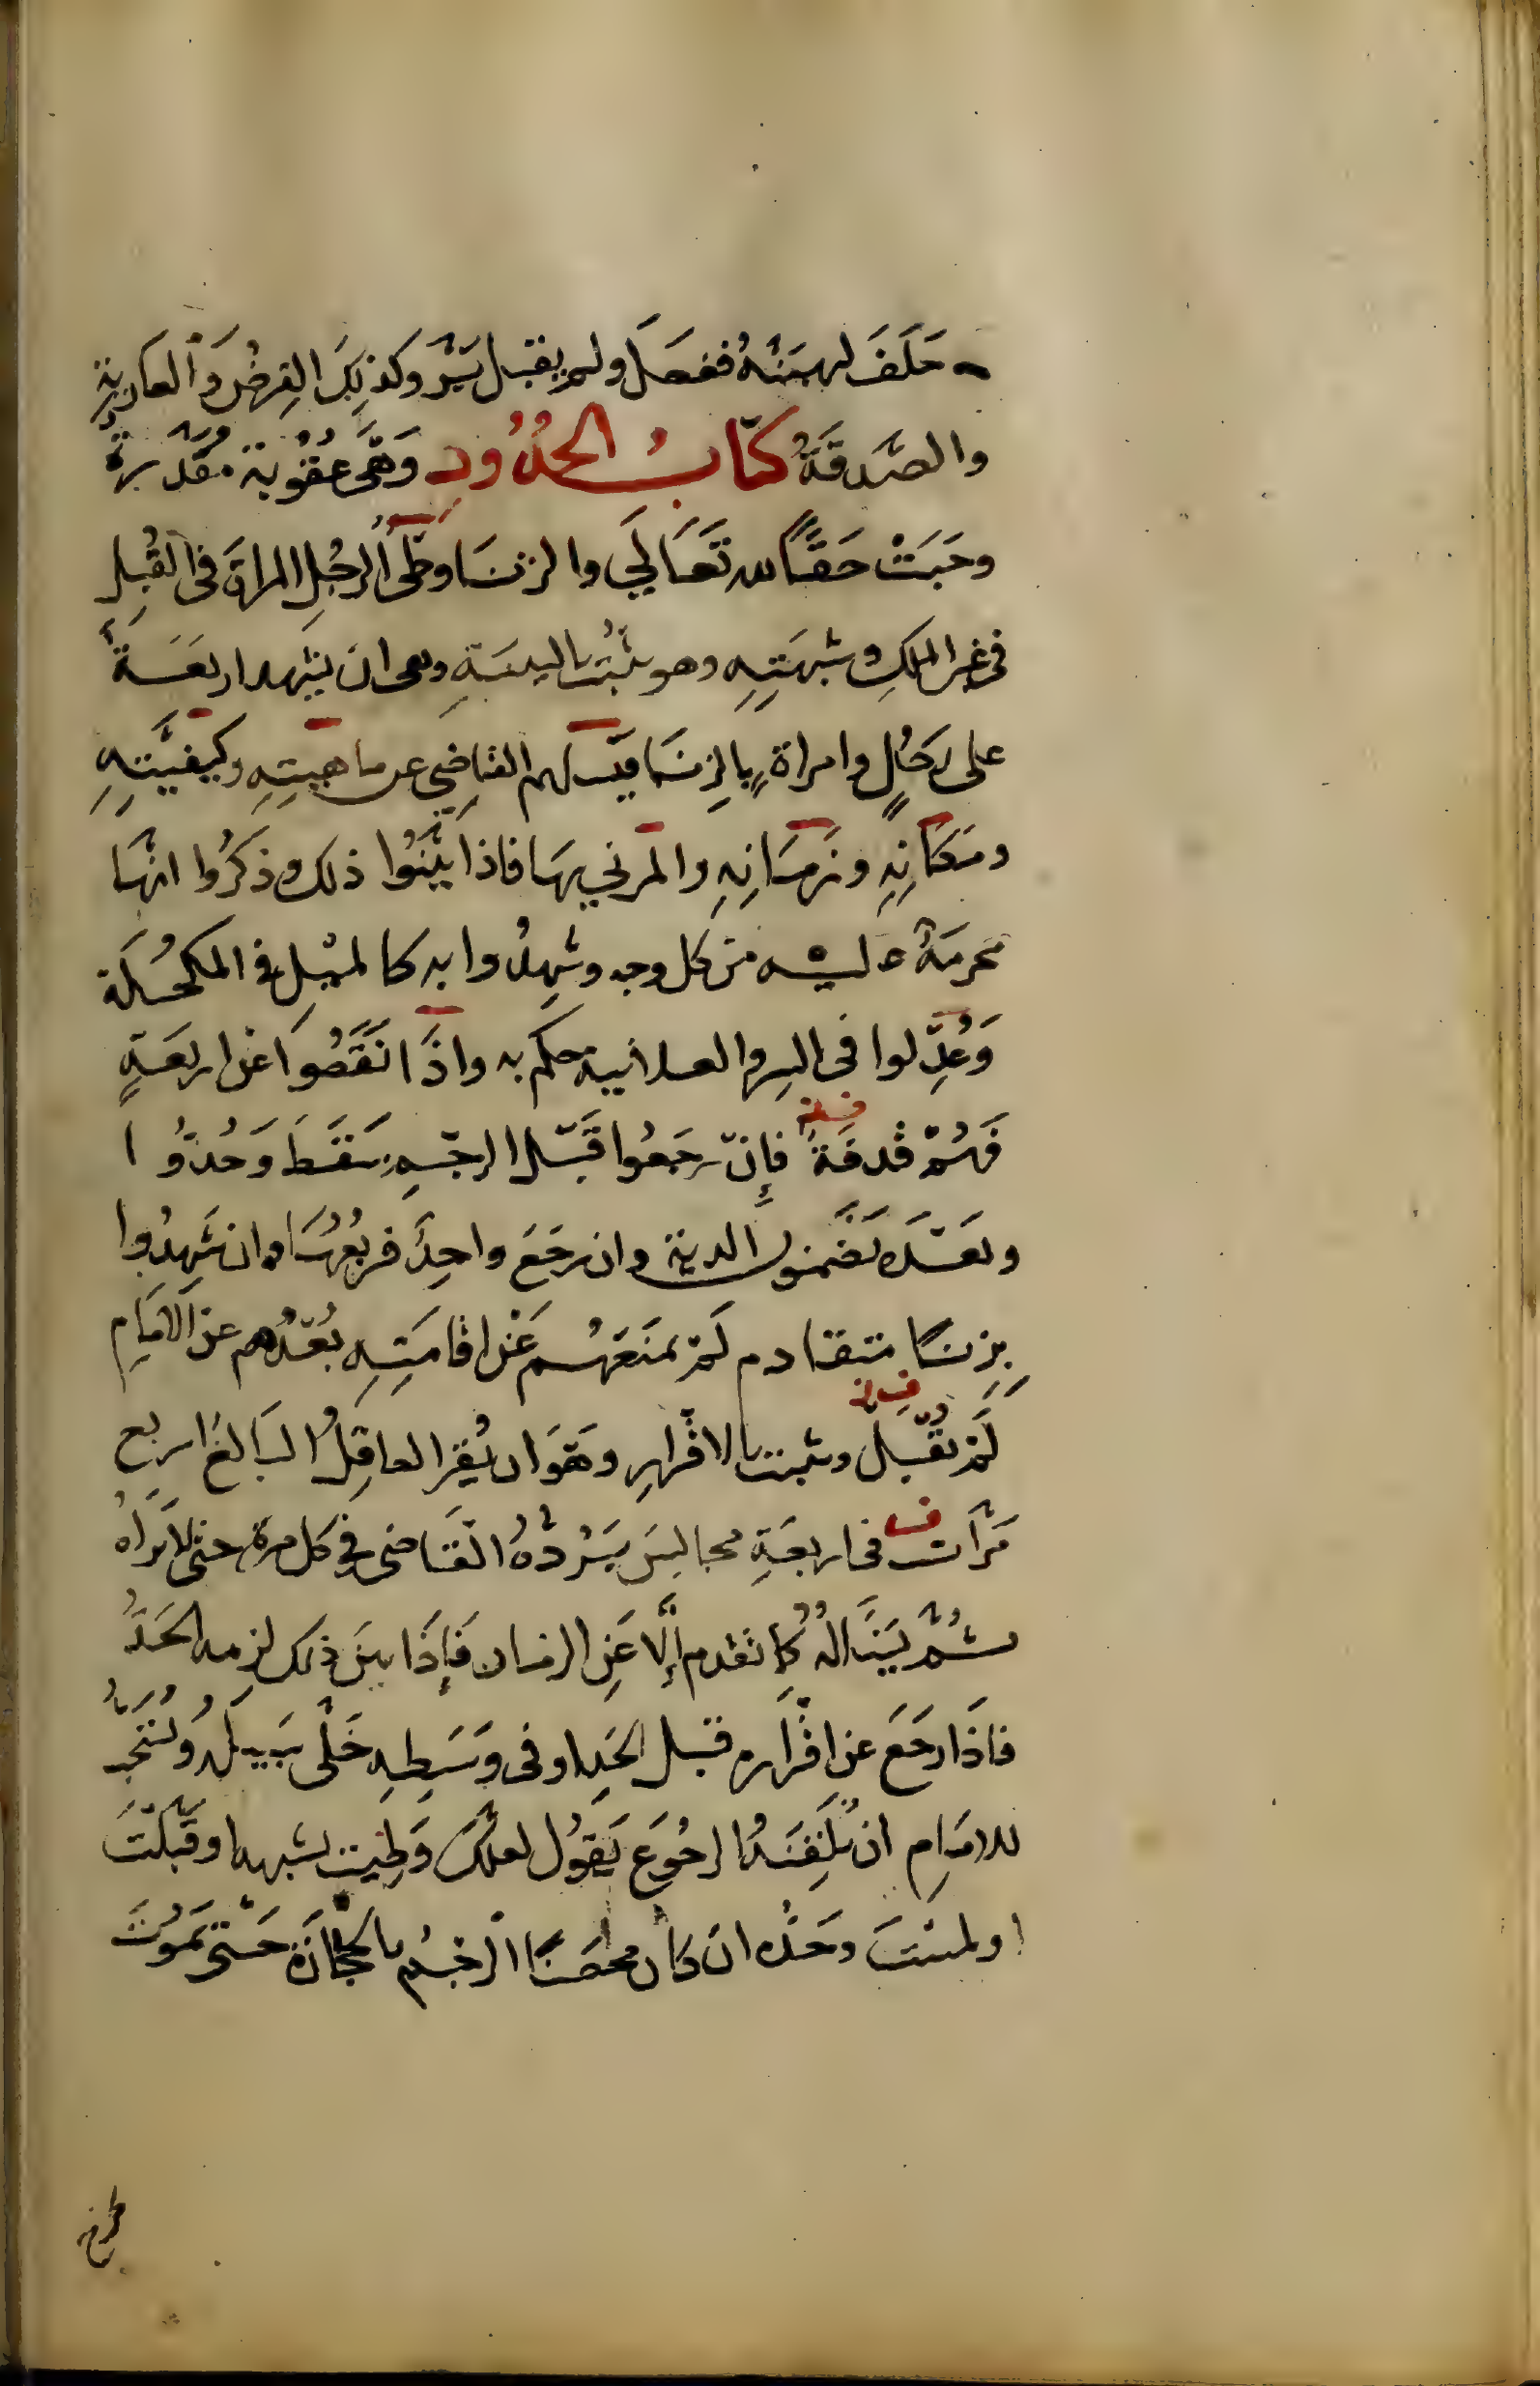 حَلَفَ ليهبَنَّهُ ففعَلَ ولم يقبل بَرَّ وكذلِكَ القرضُ وَالعاريةُ
والصَّدقةُ كتابُ الحدُودِ وَهىَ عقُوبة مقدّرة
وجَبَتْ حَقًّا لله تَعَالَي والزنَا وطئُ الرجُلِ المراةَ فى القُبلِ
فى غير الملكِ وشبهَتِهِ وهو يثبُت بالبينةِ وهى ان يشهد اربعَة
على رَجُلٍ وامراةٍ بالزِنَا فيسالهم القاضِي عن ماهيتِهِ وكيفيَّتِهِ
ومَكانِهِ وزمَانِهِ والمزني بهَا فاذا بَيَّنوُا ذلك وذكرُوا انهَا
محرمَةٌ عليه من كل وجه وشهِدُوا به كالميْلِ في المكحُلة
وَعُدِّلوا فى السر والعلانية حكم به واذَا نَقَصُوا عن اربعَةٍ
فَهُمْ قذفةٌ فإنْ رجَعُوا قبْل الرجْمِ سَقَطَ وَحُدُّوا
وبعَدَه يَضمَنونَ الدية وان رجَعَ واحِدٌ فربعُهَا وان شَهِدُوا
بِزنَا متقادم لَمْ يمنَعْهُم عَنْ اقامَتِهِ بُعْدُهم عن الامَامِ
لَمْ تقبَل ويثبت بالاقْرارِ وهَوَ ان يُقِرَّ العاقِلُ البَالغُ اربع
مرَّات فى اربعَةِ مجالِسَ يَرُدُّهُ القَاضى في كل مرة حتى لا يَرَاهُ
ثُمَّ يَسَالُهُ كما تقدم إلَّا عَنِ الزمان فَإِذَا بينَ ذلك لزمه الحَدُّ
فاذَا رجَعَ عن اقْرَاره قبل الحَدِ او فى وَسَطِهِ خَلَّى سَبِيلَهُ ويُستَحَبُّ
للامَامِ ان يُلَقِّنَهُ الرجُوعَ يَقوُل لعَلَّكَ وَطِيتَ بشبهه او قَبَّلتَ
او لمسْتَ وحَدُّه ان كان محصَنًا الرجْمُ بالحجَارَة حَتى يمَوُتَ